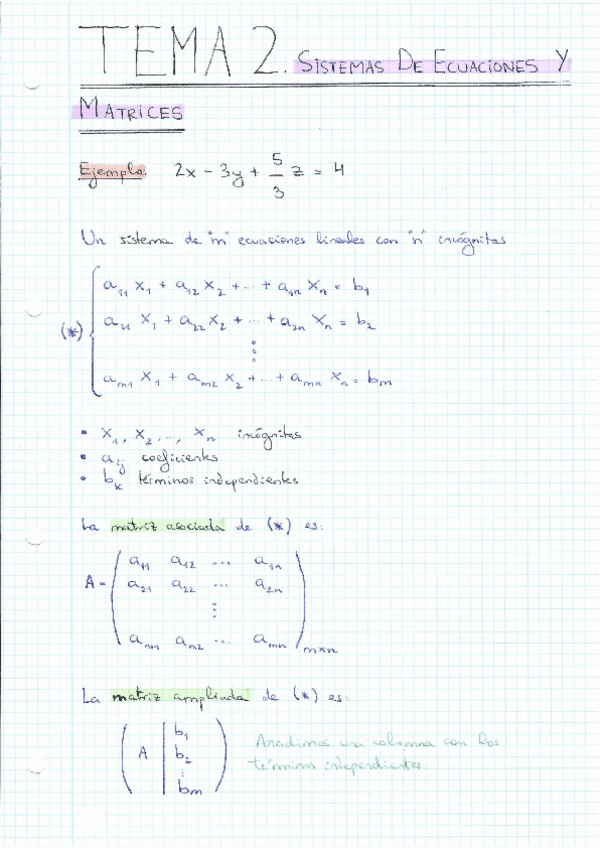 TEMA 2. SISTEMAS DE ECUACIONES Y
MATRICES
Ejemplo: 2x - 3y + 5/3 z = 4
Un sistema de "m" ecuaciones lineales con "n" incógnitas
(*) { a₁₁ x₁ + a₁₂ x₂ + ... + a₁ₙ xₙ = b₁
a₂₁ x₁ + a₂₂ x₂ + ... + a₂ₙ xₙ = b₂
⋮
aₘ₁ x₁ + aₘ₂ x₂ + ... + aₘₙ xₙ = bₘ
• x₁, x₂, ..., xₙ incógnitas
• aᵢⱼ coeficientes
• bₖ términos independientes
La matriz asociada de (*) es:
A = ( a₁₁ a₁₂ ... a₁ₙ
a₂₁ a₂₂ ... a₂ₙ
⋮
aₘ₁ aₘ₂ ... aₘₙ ) m×n
La matriz ampliada de (*) es:
( A | b₁
b₂
⋮
bₘ )
Añadimos una columna con los
términos independientes.